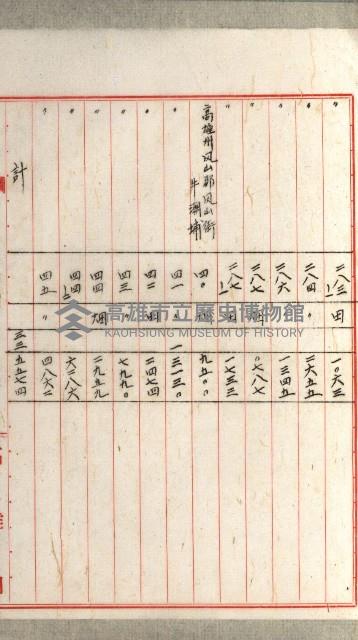 〃 二八三ノ一 田 一〇六三
〃 二八四 〃 二六五五
〃 二八六 〃 一三四五
〃 二八七 〇七八七
高雄州鳳山郡鳳山街 二八七ノ一 一七三三
牛潮埔 四〇 九五〇〇
〃 四一 一三一三〇
〃 四二 田 二四七四
〃 四三 〃 七九九〇
〃 四四 畑 二九五九
〃 四四ノ二 〃 六二八六
〃 四五 〃 四八六二
計 三三五五七四
高雄市立歷史博物館
KAOHSIUNG MUSEUM OF HISTORY